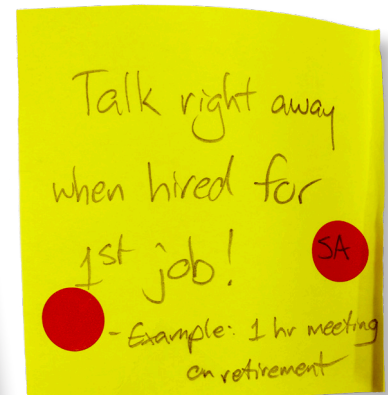 Talk right away
when hired for
1st job!
SA
- Example: 1 hr meeting
on retirement